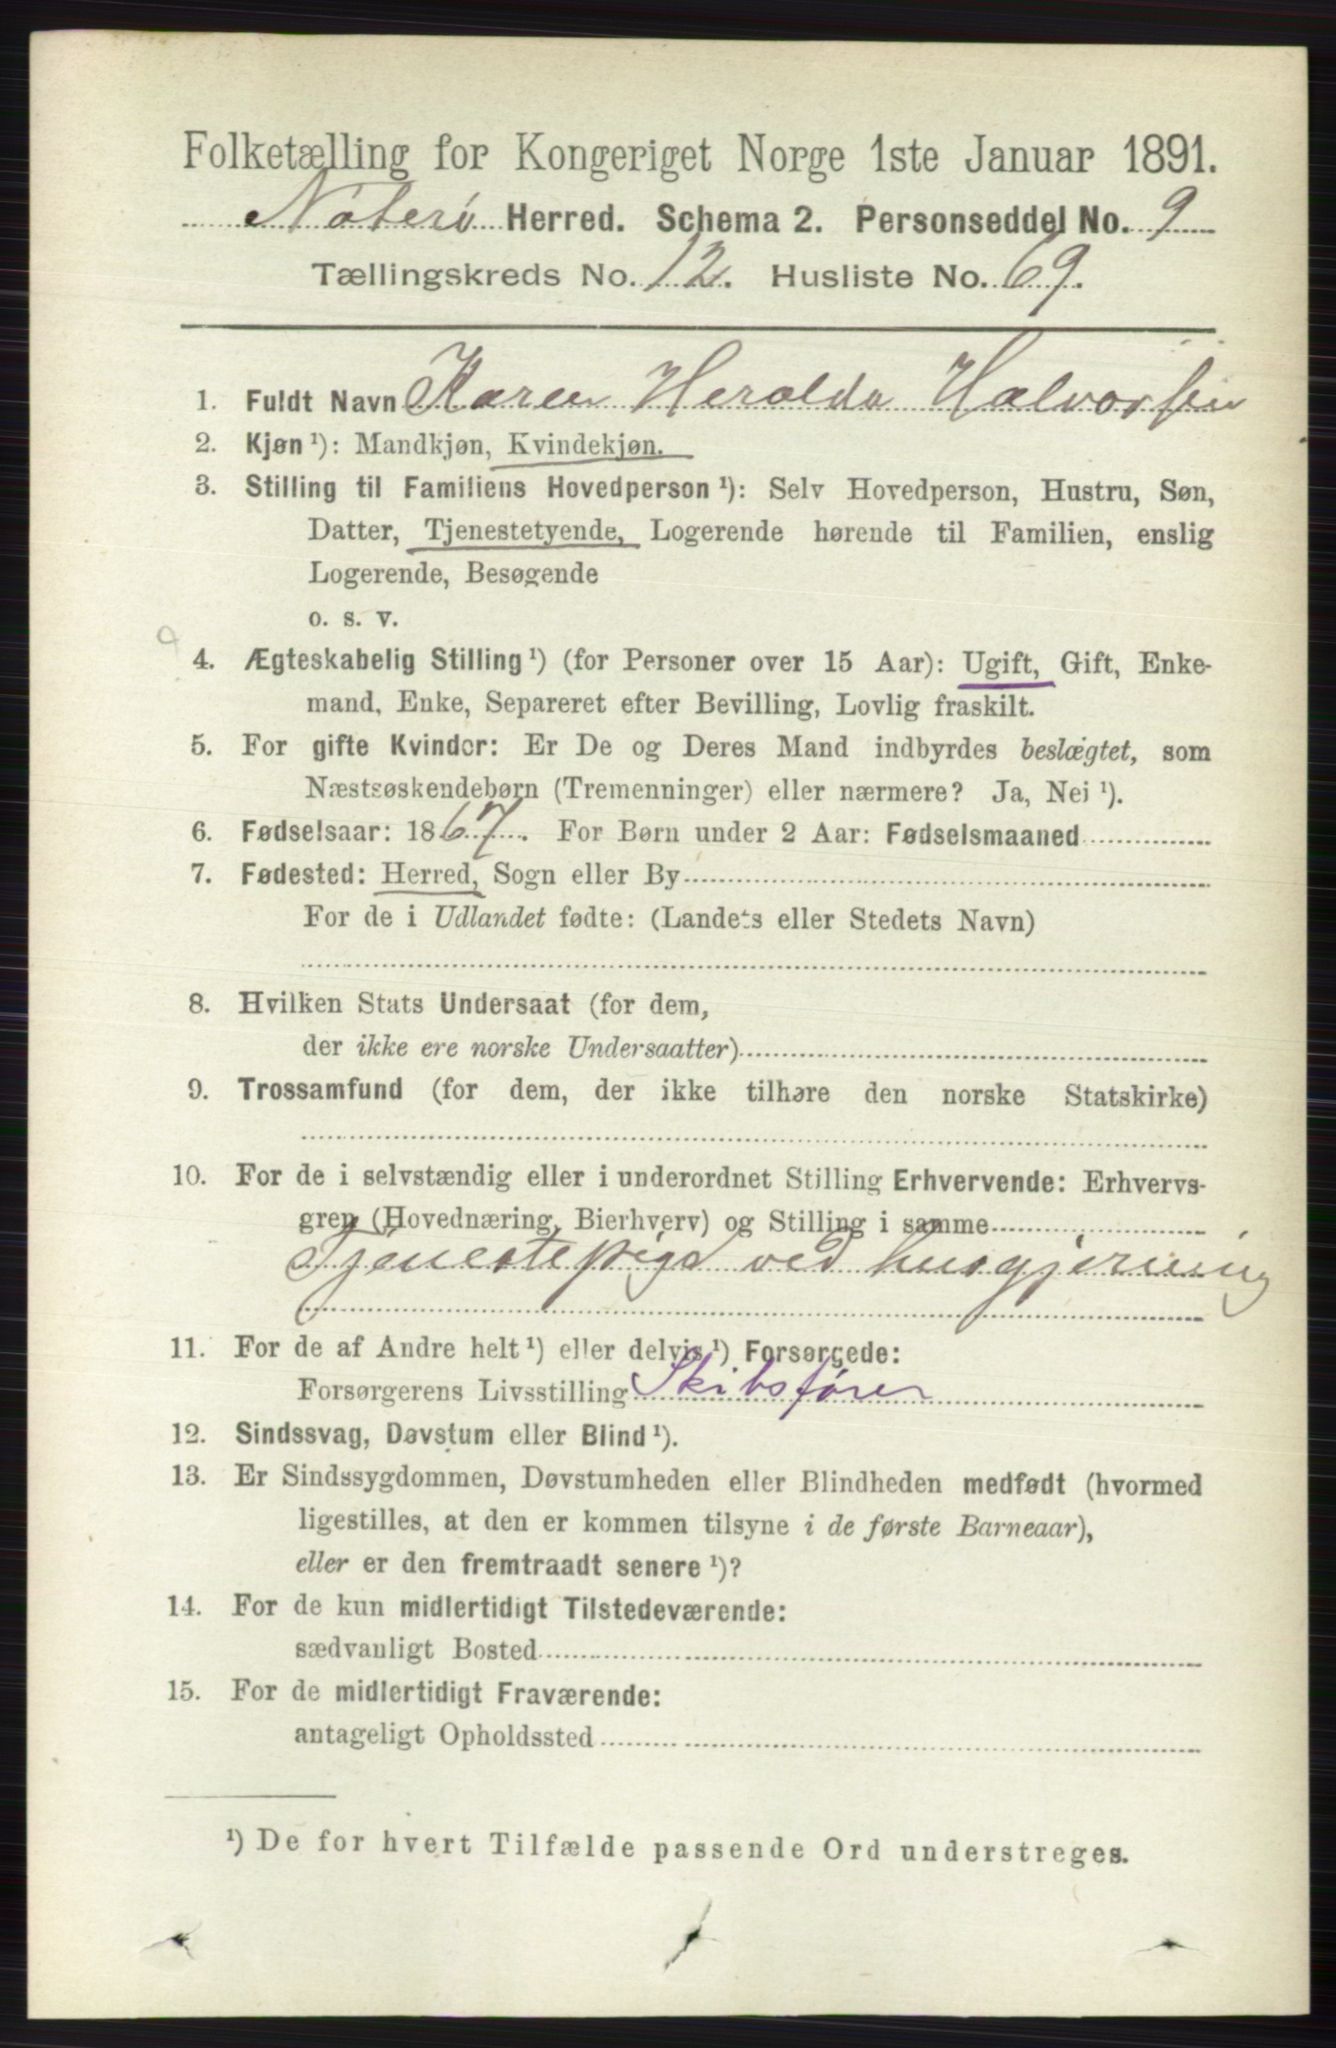 Folketælling for Kongeriget Norge 1ste Januar 1891.
Nøterø Herred. Schema 2. Personseddel No. 9
Tællingskreds No. 12. Husliste No. 69.
1. Fuldt Navn Karen Heralda Halvorsen
2. Kjøn ¹): Mandkjøn, Kvindekjøn.
3. Stilling til Familiens Hovedperson ¹): Selv Hovedperson, Hustru, Søn,
Datter, Tjenestetyende, Logerende hørende til Familien, enslig
Logerende, Besøgende
o. s. v.
4. Ægteskabelig Stilling ¹) (for Personer over 15 Aar): Ugift, Gift, Enke-
mand, Enke, Separeret efter Bevilling, Lovlig fraskilt.
5. For gifte Kvinder: Er De og Deres Mand indbyrdes beslægtet, som
Næstsøskendebørn (Tremenninger) eller nærmere? Ja, Nei ¹).
6. Fødselsaar: 1867. For Børn under 2 Aar: Fødselsmaaned
7. Fødested: Herred, Sogn eller By
For de i Udlandet fødte: (Landets eller Stedets Navn)
8. Hvilken Stats Undersaat (for dem,
der ikke ere norske Undersaatter)
9. Trossamfund (for dem, der ikke tilhøre den norske Statskirke)
10. For de i selvstændig eller i underordnet Stilling Erhvervende: Erhvervs-
gren (Hovednæring, Bierhverv) og Stilling i samme
Tjenestepige ved husgjerning
11. For de af Andre helt ¹) eller delvis ¹) Forsørgede:
Forsørgerens Livsstilling Skibsfører
12. Sindssvag, Døvstum eller Blind ¹).
13. Er Sindssygdommen, Døvstumheden eller Blindheden medfødt (hvormed
ligestilles, at den er kommen tilsyne i de første Barneaar),
eller er den fremtraadt senere ¹)?
14. For de kun midlertidigt Tilstedeværende:
sædvanligt Bosted
15. For de midlertidigt Fraværende:
antageligt Opholdssted
¹) De for hvert Tilfælde passende Ord understreges.